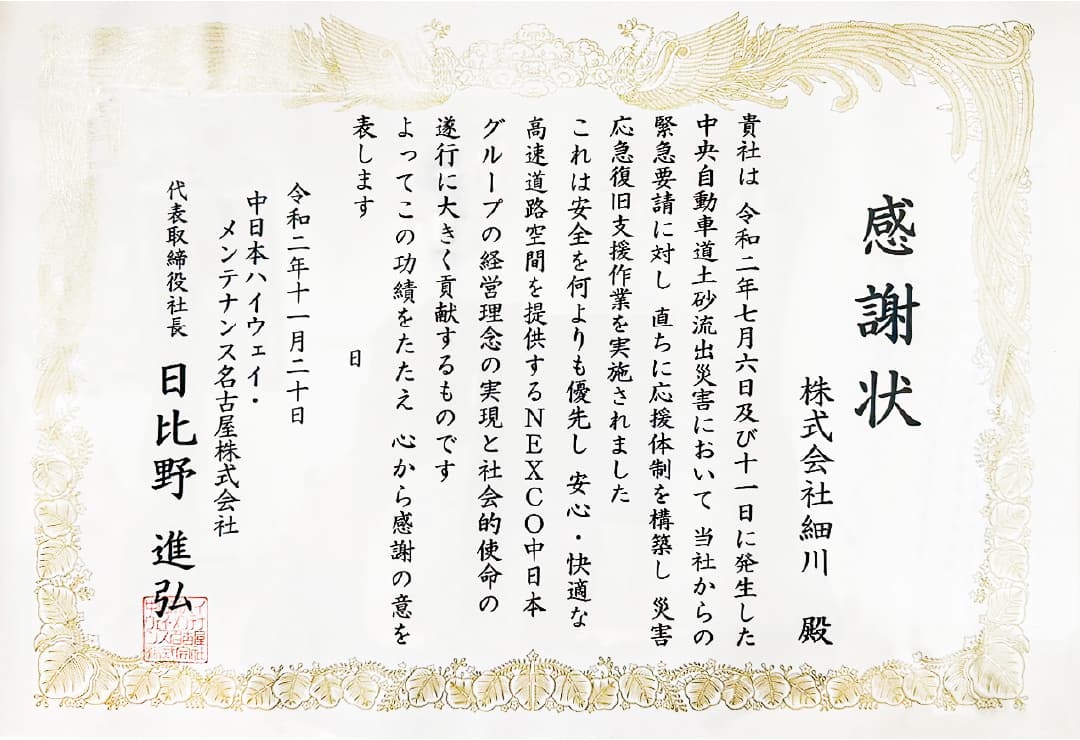 感謝状
株式会社細川 殿
貴社は 令和二年七月六日及び十一日に発生した
中央自動車道土砂流出災害において 当社からの
緊急要請に対し 直ちに応援体制を構築し 災害
応急復旧支援作業を実施されました
これは安全を何よりも優先し 安心・快適な
高速道路空間を提供するNEXCO中日本
グループの経営理念の実現と社会的使命の
遂行に大きく貢献するものです
よってこの功績をたたえ 心から感謝の意を
表します
日
令和二年十一月二十日
中日本ハイウェイ・
メンテナンス名古屋株式会社
代表取締役社長 日比野 進弘